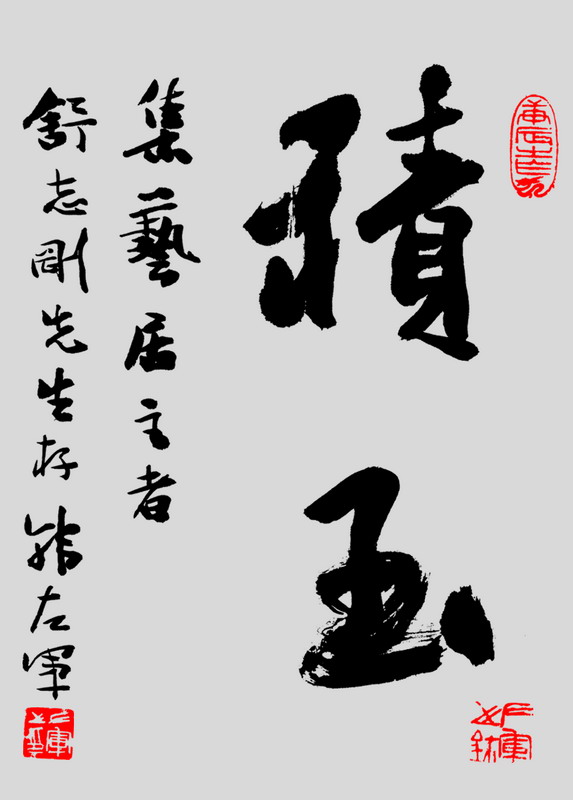 庚辰
積玉
集藝居主者
舒志剛先生存 左軍